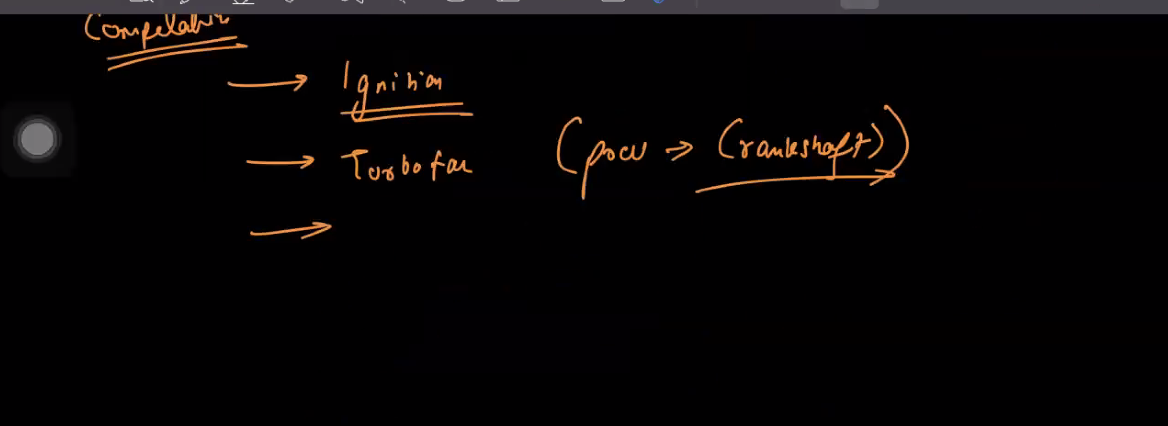 Compilation
→ Ignition
→ Turbofan (prev → (rankshaft))
→